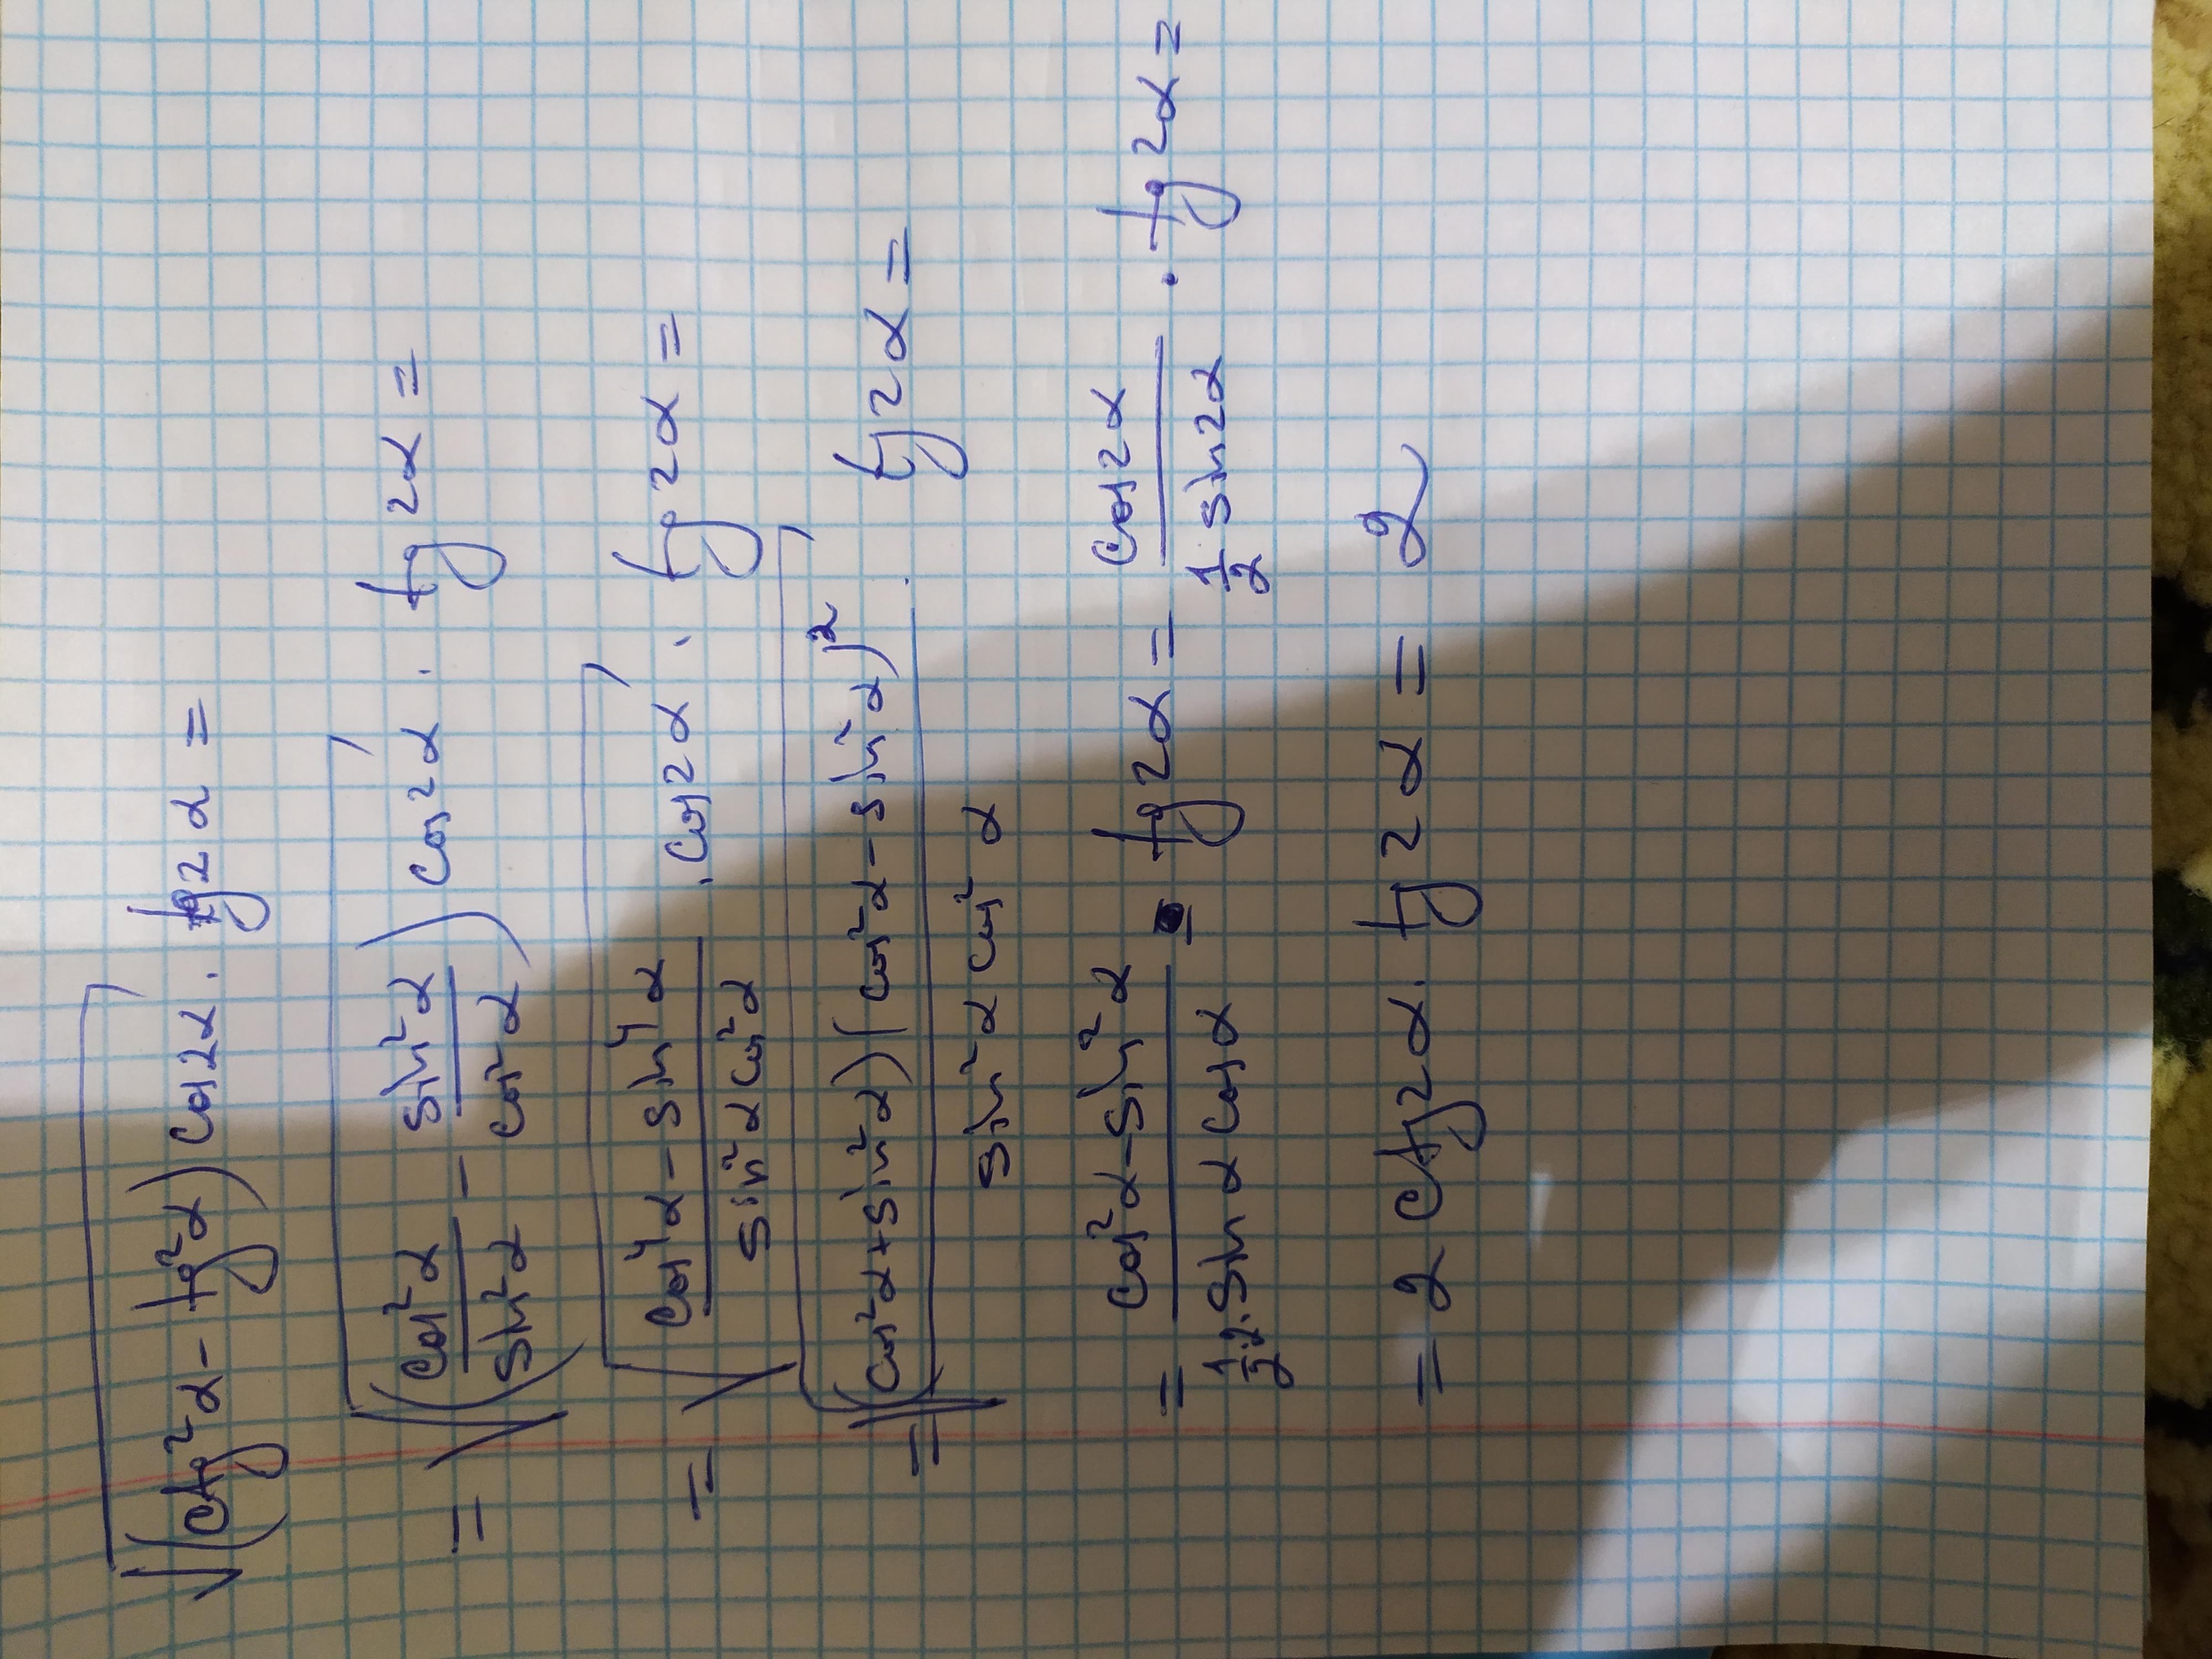 √((ctg²α - tg²α) cos2α) · tg2α =
= √((cos²α/sin²α - sin²α/cos²α) cos2α) · tg2α =
= √((cos⁴α - sin⁴α)/(sin²α cos²α) · cos2α) · tg2α =
= √((cos²α + sin²α)(cos²α - sin²α)²/(sin²α cos²α)) · tg2α =
= (cos²α - sin²α)/(1/2 · 2 · sinα cosα) · tg2α = cos2α/(1/2 sin2α) · tg2α =
= 2 ctg2α · tg2α = 2